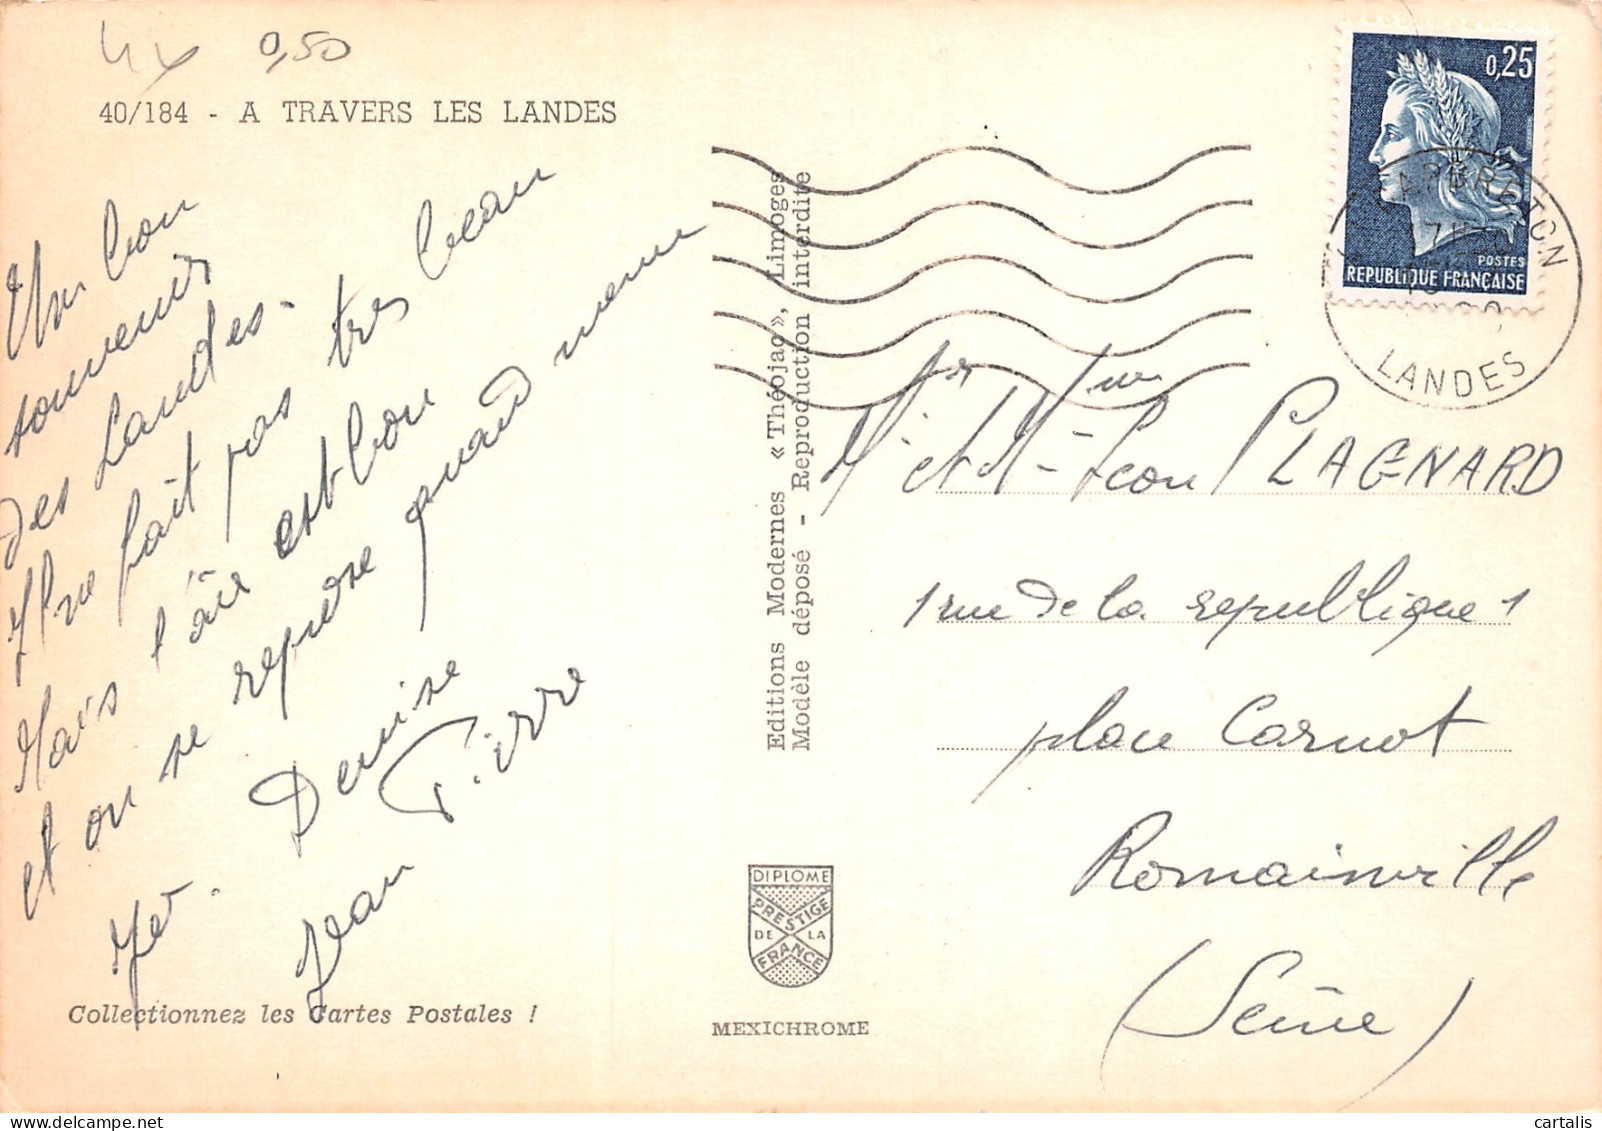 4x 0,50
40/184 - A TRAVERS LES LANDES
Un bon
souvenir
des Landes.
Il ne fait pas très beau
Mais l'air est bon
et on se repose quand meme
Denise
Pierre
Jean
Collectionnez les Cartes Postales !
Editions Modernes « Théojac », Limoges
Modèle déposé - Reproduction interdite
DIPLOME
PRESTIGE
DE LA
FRANCE
MEXICHROME
0,25
POSTES
REPUBLIQUE FRANÇAISE
LANDES
Mr et Mme Léon PLAGNARD
1 rue de la republique 1
place Carnot
Romainville
(Seine)
cartalis
www.delcampe.net